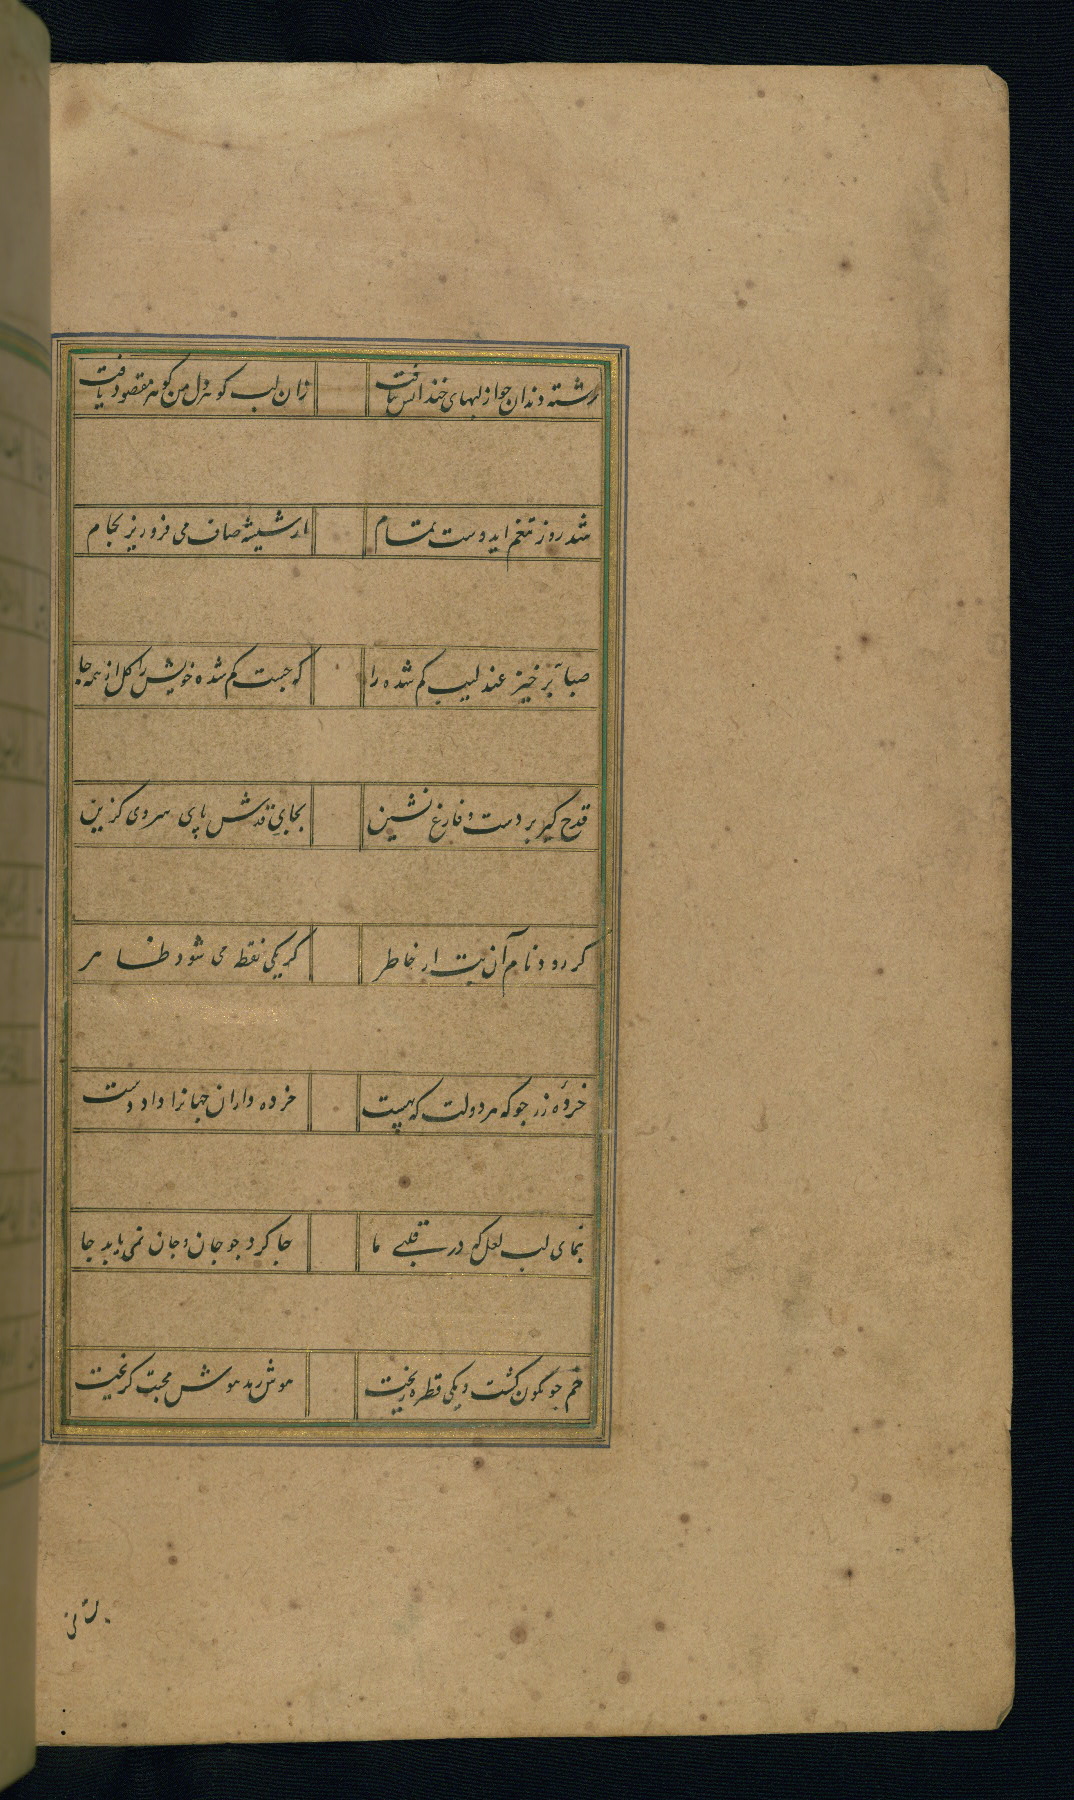 رشته دندان جو از لبهای خندانش بتافت زان لب کوهر دل من کوهر مقصود یافت
شد روز تنعم ایدوست تمام از شیشه صاف می فرو ریز بجام
صبا بر خیز عندلیب کم شده را که جست کم شده خویش را کل از همه جا
قدح کیر بر دست و فارغ نشین بجای قدش پای سروی کزین
کر رود نام آن بت از خاطر کر یکی نقطه می شود ظاهر
خرده زر جو که هر دولت که هست خرده داران جهانرا داد دست
بنمای لب لعل که در قلب ما جا کرد جو جان و جان نمی یابد جا
خم جو نکون کشت و یکی قطره ریخت هوش ز مدهوش محبت کریخت